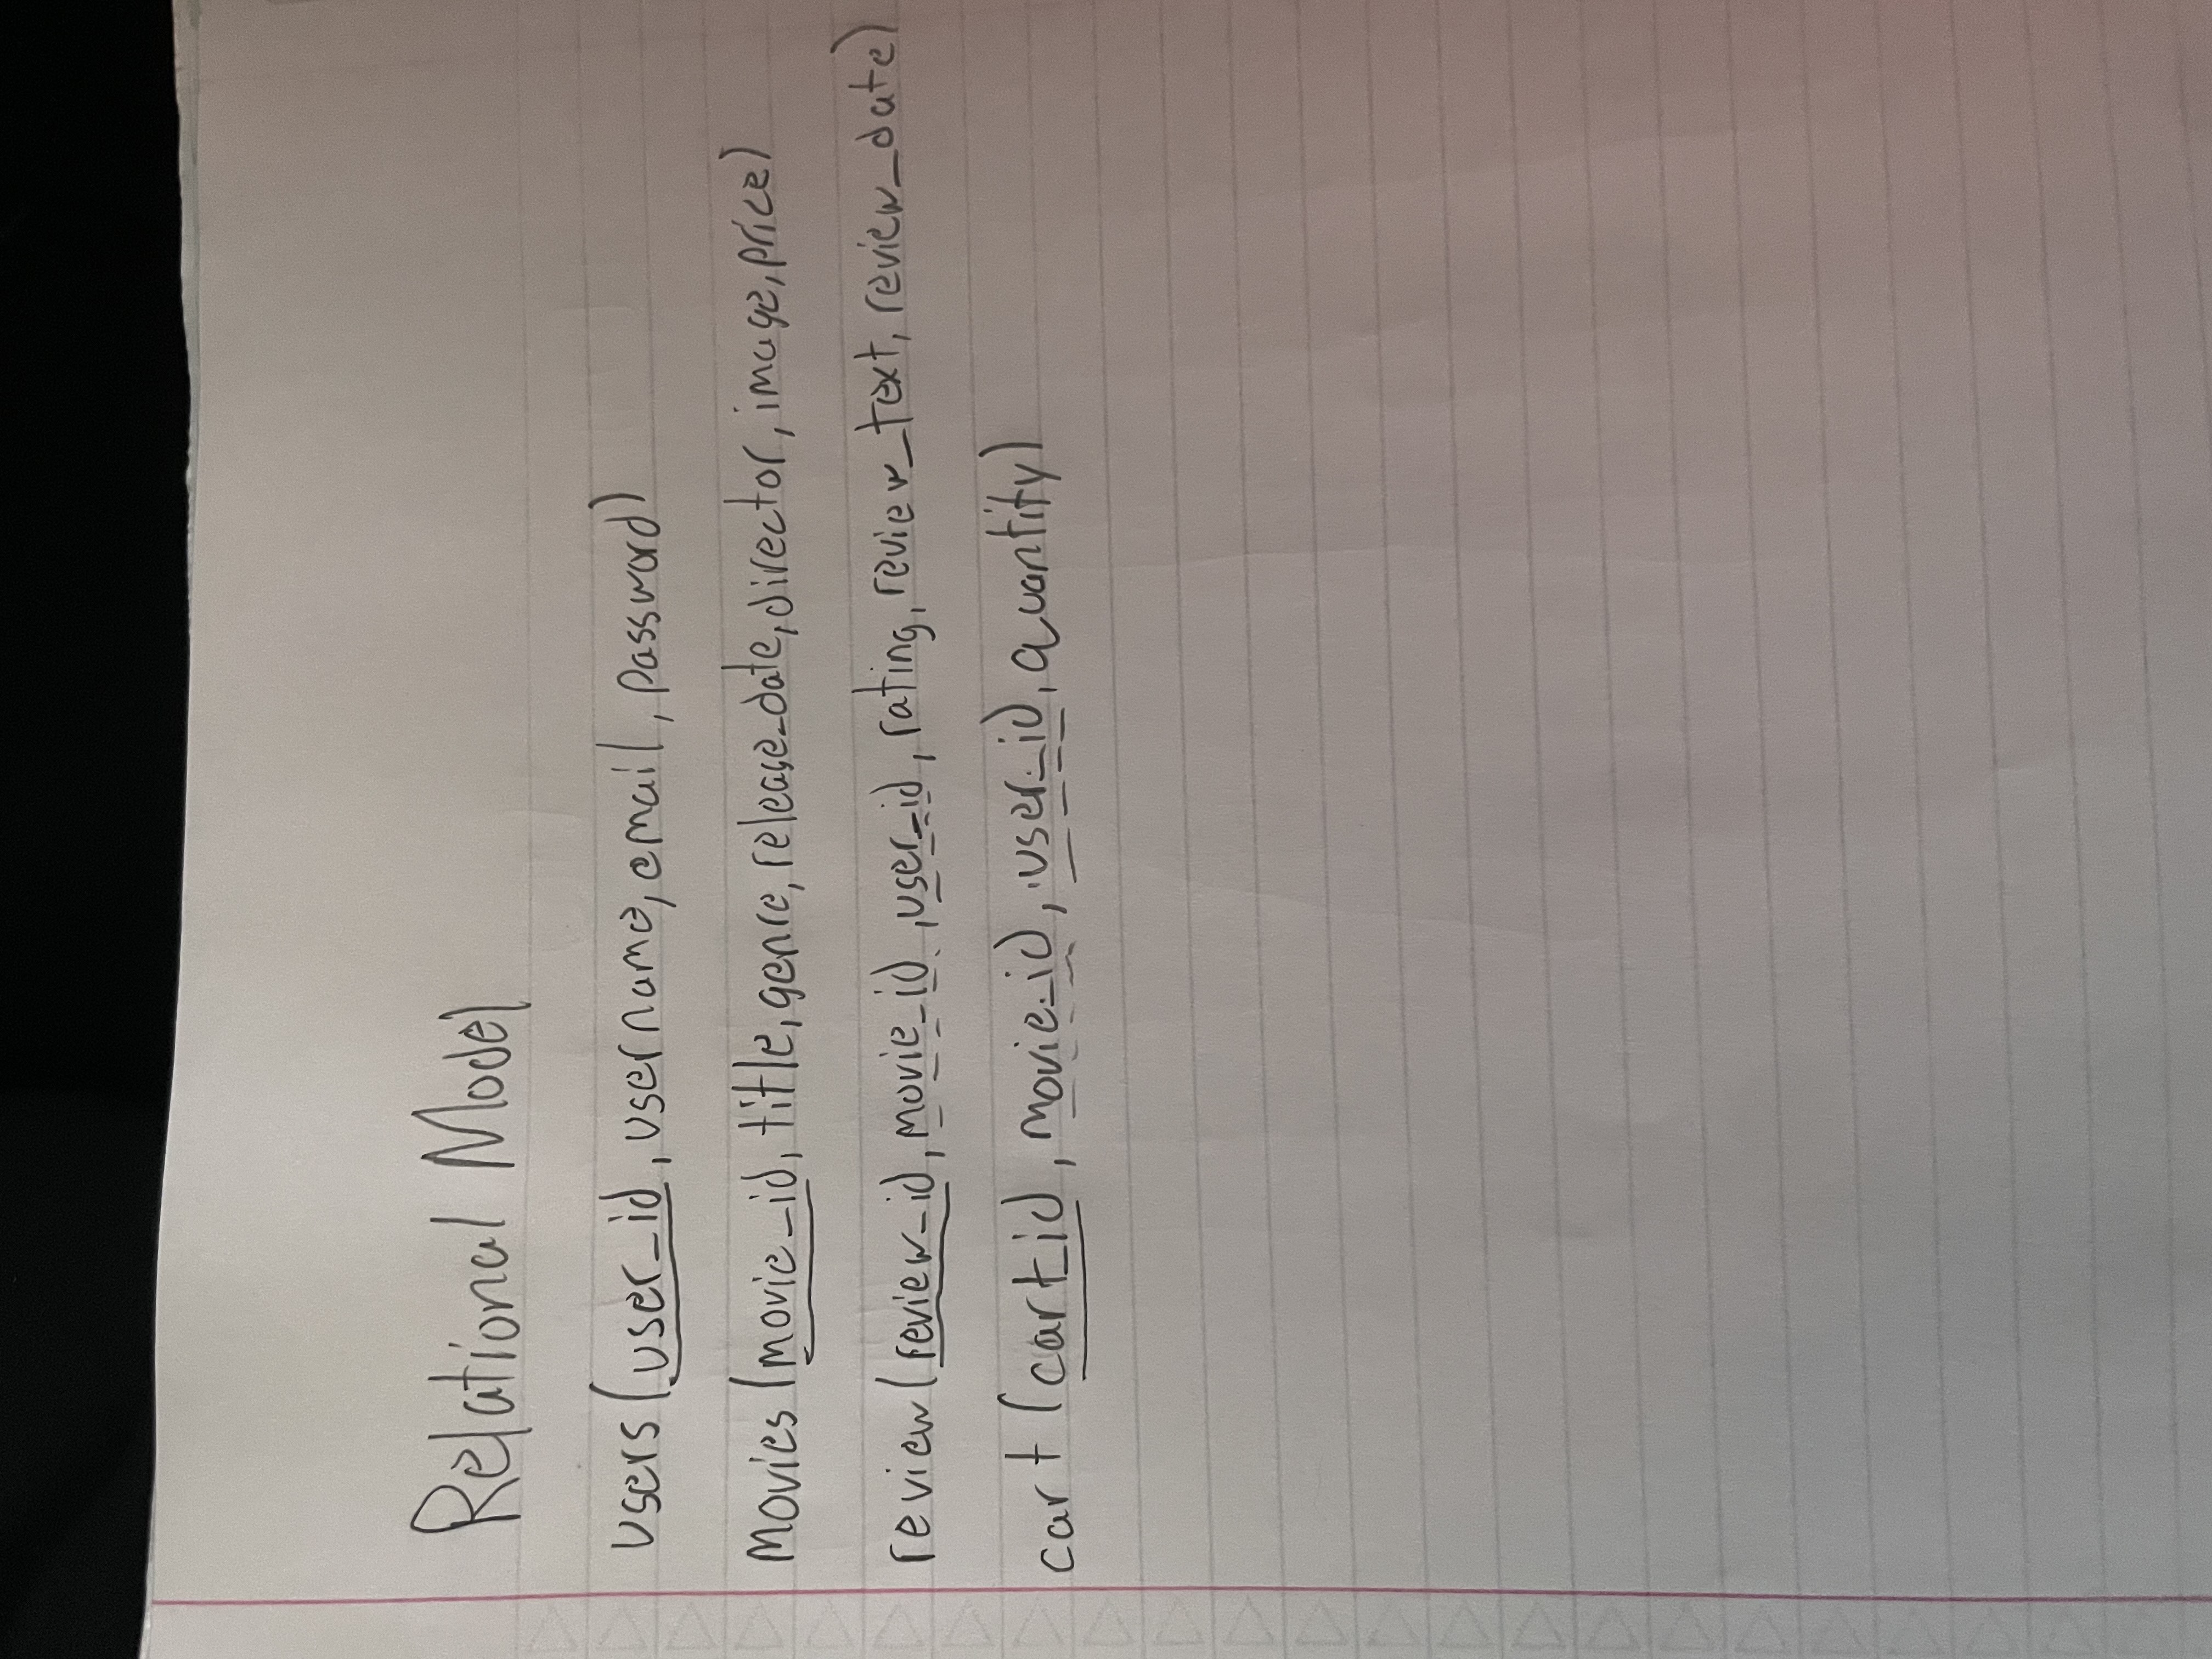 Relational Model
users (user_id, username, email, password)
Movies (movie_id, title, genre, release_date, director, image, price)
review (review_id, movie_id, user_id, rating, review_text, review_date)
cart (cart_id, movie_id, user_id, quantity)